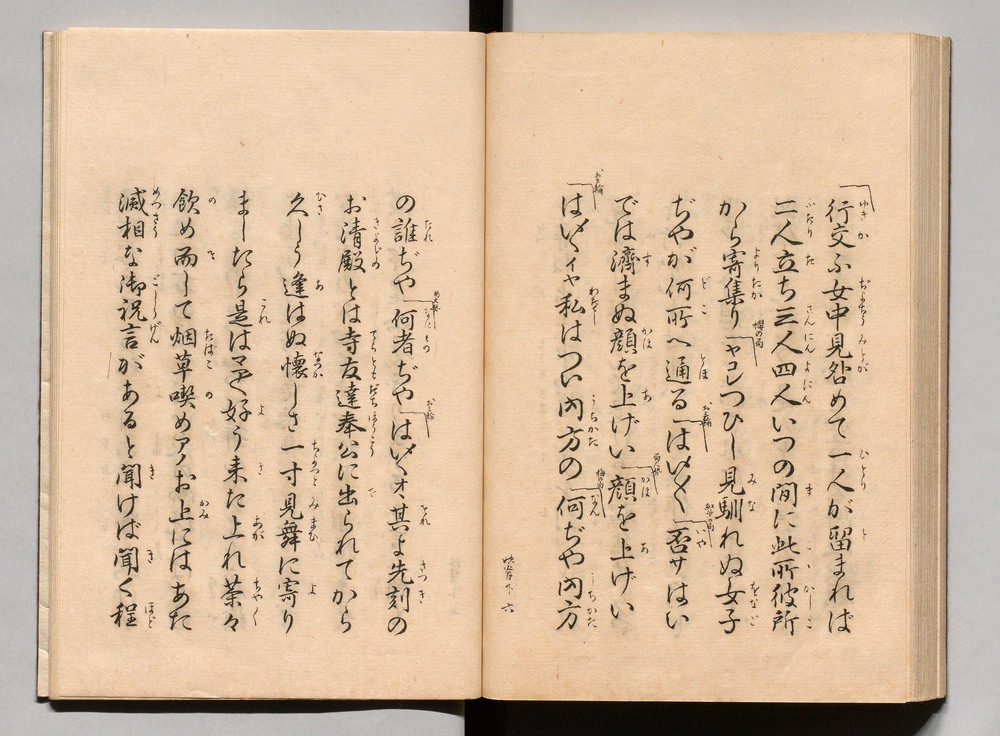 行交ふ女中見咎めて一人が留まれば
二人立ち三人四人いつの間に此所彼所
から寄集り コンつひし見馴れぬ女子
ぢやが何所へ通る はい〳〵 否サはい
では濟まぬ顔を上げい 顔を上げい
はい〳〵イヤ私はつい内方の 何ぢや内方
の誰ぢや 何者ぢや はい〳〵オヽ其よ先刻の
お清殿とは寺友達奉公に出られてから
久しう逢はぬ懐しさ一寸見舞に寄り
ましたら是はマア好う来た上れ茶々
飲め而して烟草喫めアノお上にはあた
滅相な御祝言があると聞けば聞く程